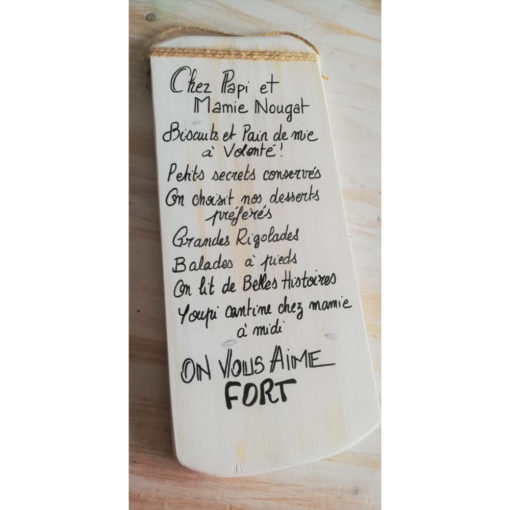 Chez Papi et
Mamie Nougat
Biscuits et Pain de mie
à Volonté !
Petits secrets conservés
On choisit nos desserts
préférés
Grandes Rigolades
Balades à pieds
On lit de Belles Histoires
Youpi cantine chez mamie
à midi
ON VOUS AIME
FORT